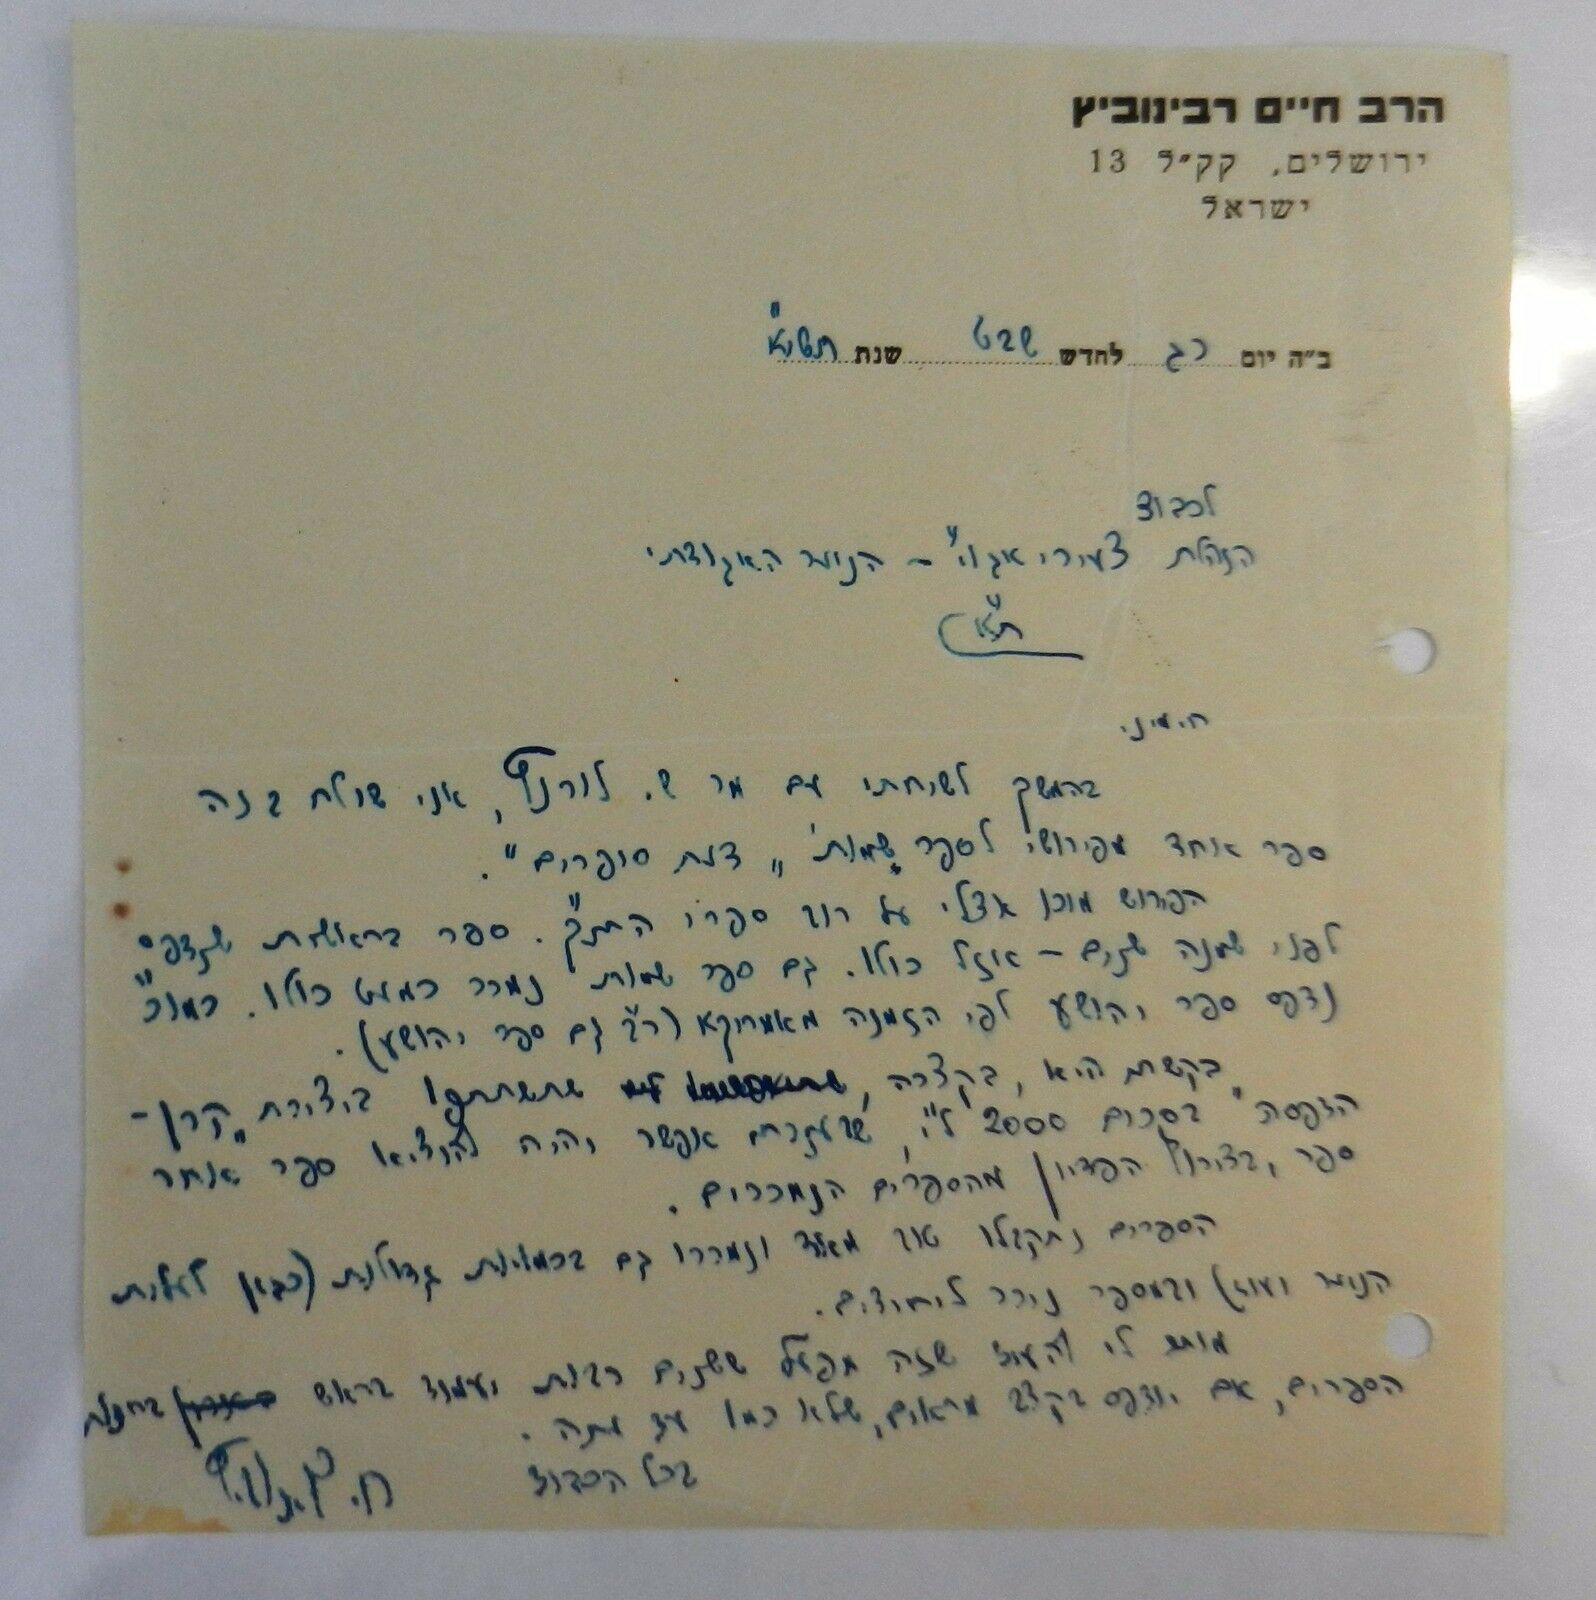 הרב חיים רבינוביץ
ירושלים, קק״ל 13
ישראל
ב״ה יום כג לחדש שבט שנת תשי״א
לכבוד
הנהלת צעירי אגו״י – הנוער האגודתי
ת״א
ח.נ.
בהמשך לשיחתי עם מר ש. לורנץ, אני שולח בזה
ספר אחד מפירושי לספר שמות, "דעת סופרים".
הפירוש מוכן אצלי על רוב ספרי התנ״ך. ספר בראשית שנדפס
לפני שמנה שנים – אזל כולו. גם ספר שמות נמכר כמעט כולו. כמו״כ
נדפס ספר יהושע לפי הזמנה מאמריקא (רצ״ב גם ספר יהושע).
בקשתי היא, בקצרה, שתשתתפו ביצירת "קרן–
הדפסה" בסכום 2000 ל״י, שבעזרתם אפשר יהיה להוציא ספר אחר
ספר, בצירוף הפדיון מהספרים הנמכרים.
הספרים נתקבלו טוב מאוד ונמכרו גם בכמויות גדולות (כגון לעלית
הנוער ועוד) ובמספר ניכר ליחידים.
מותר לי להעיד שזה מפעל ששנים רבות יעמוד בראש בחנות
הספרים, אם יודפס בקצב מתאים, שלא כמו עד עתה.
בכל הכבוד ח. רבינוביץ